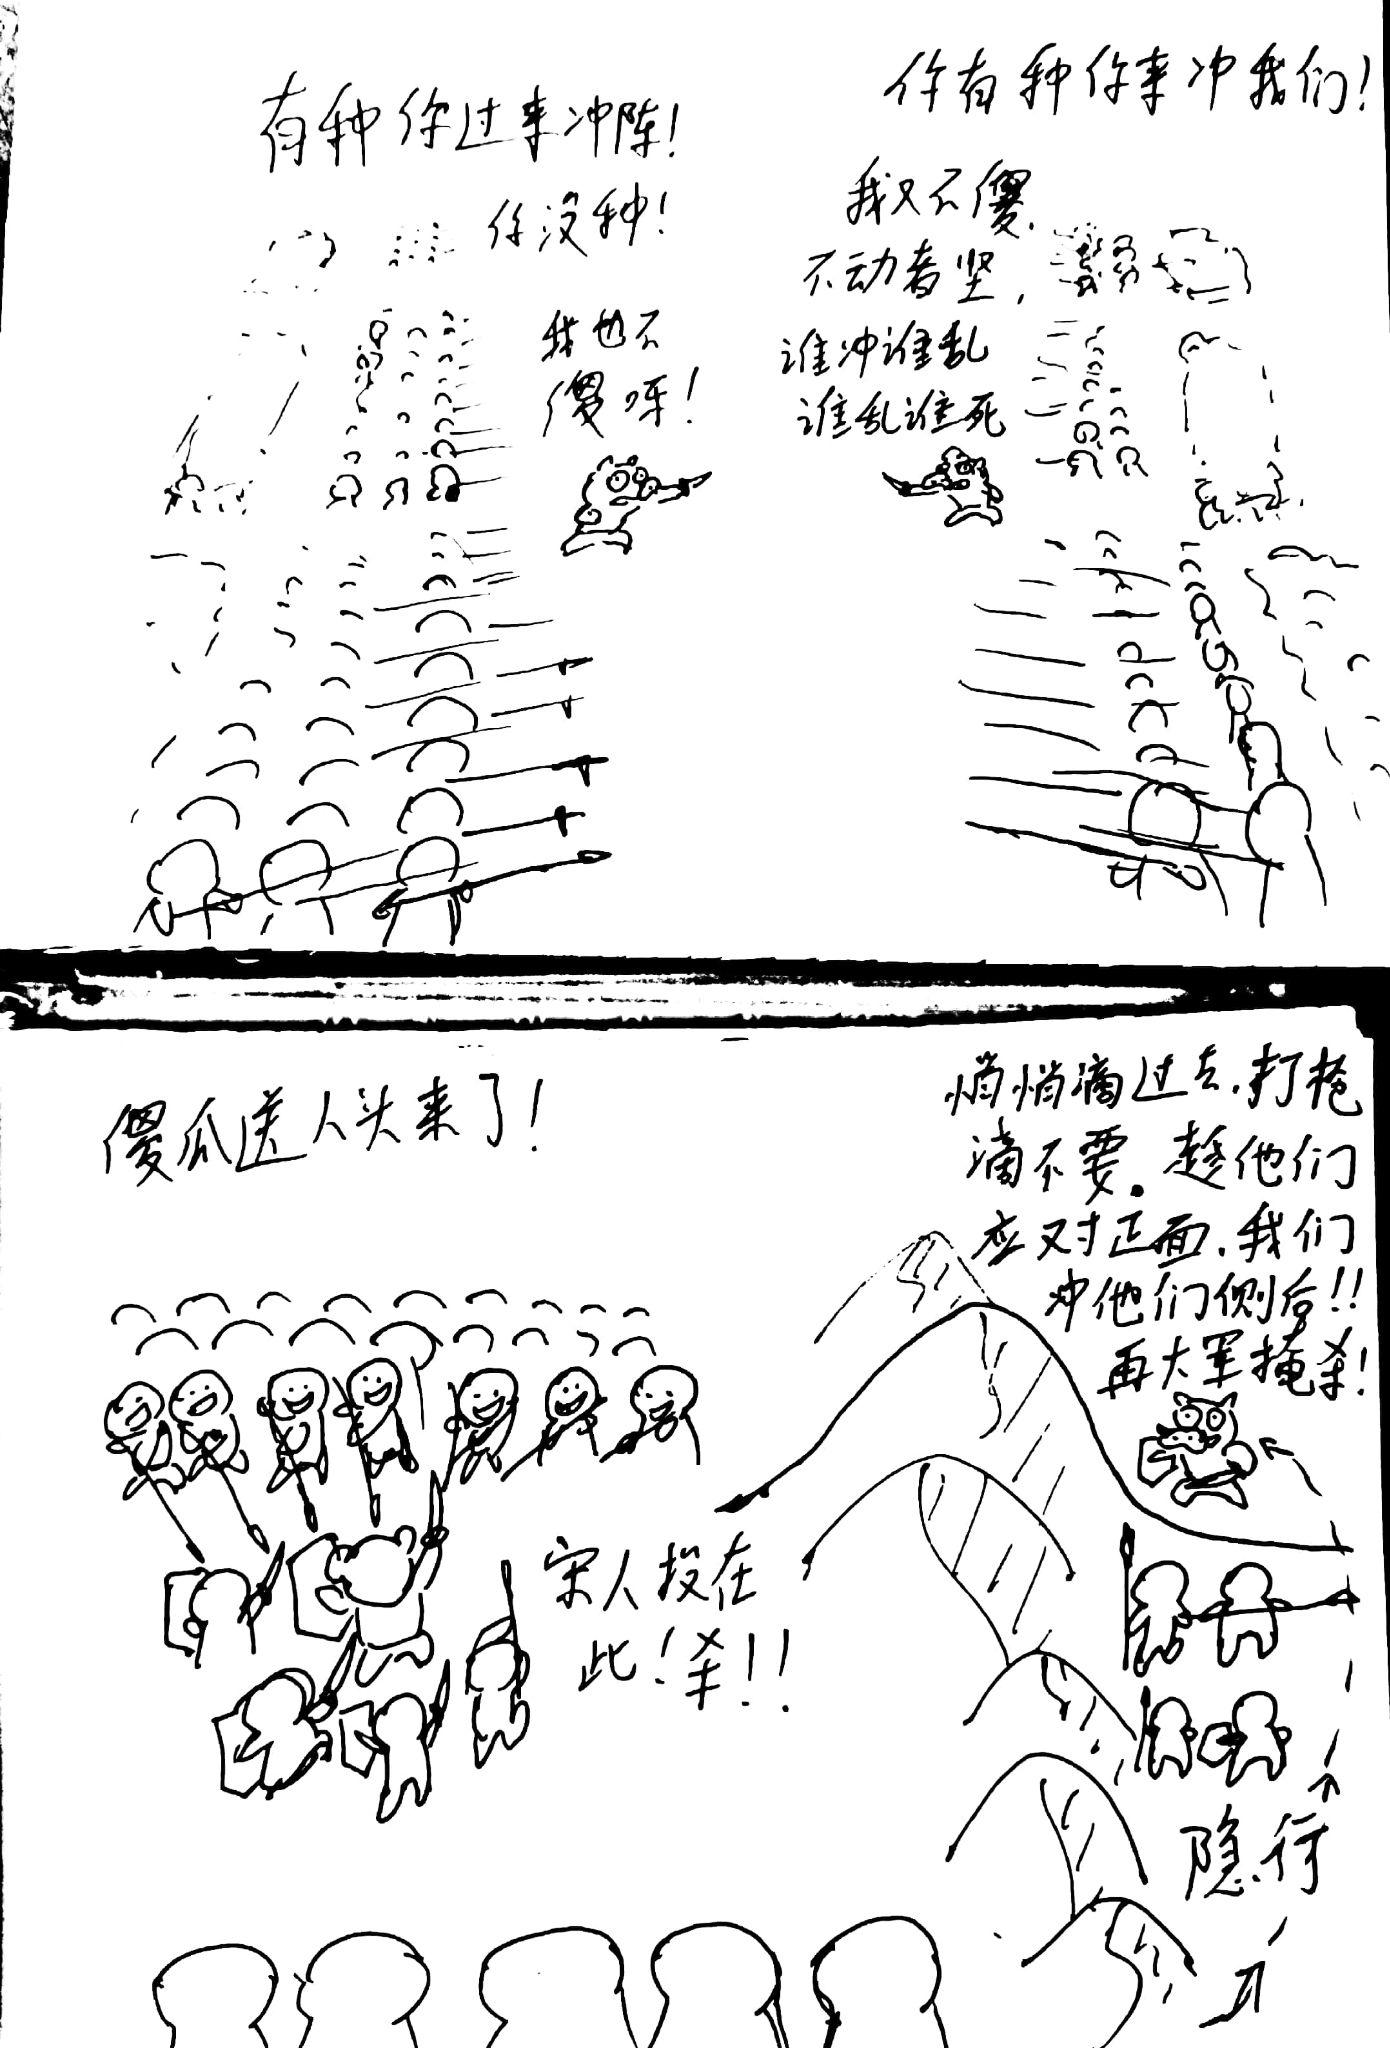 有种你过来冲阵！
你没种！
我也不
傻呀！
你有种你来冲我们！
我又不傻.
不动者坚，
谁冲谁乱
谁乱谁死
傻瓜送人头来了！
宋人投在
此！杀！！
悄悄滴过去，打枪
滴不要。趁他们
应对正面，我们
冲他们侧后！！
再大军掩杀！
隐行